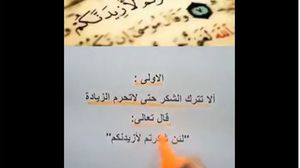 لأزيدنكم
الأولى :
ألا تترك الشكر حتى لاتحرم الزيادة
قال تعالى:
"لئن شكرتم لأزيدنكم"